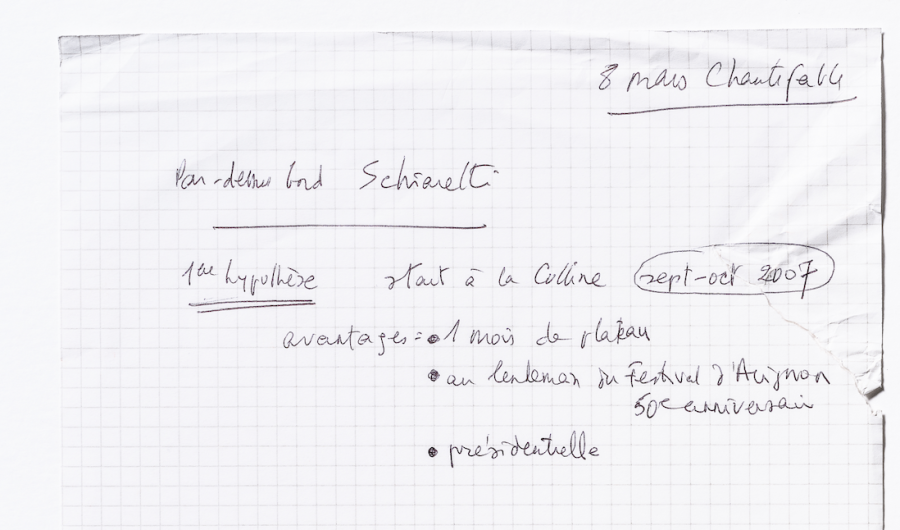 8 mars Chantefable
Par-dessus bord Schiaretti
1ère hypothèse start à la Colline sept-oct 2007
avantages : • 1 mois de plateau
• au lendemain du Festival d'Avignon
50e anniversaire
• présidentielle